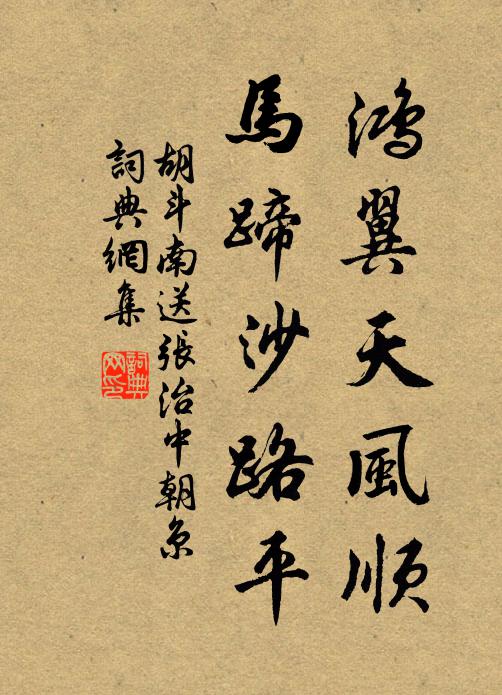 鴻翼天風順
馬蹄沙路平
胡斗南送張治中朝京
詞典網集
詞典
网印